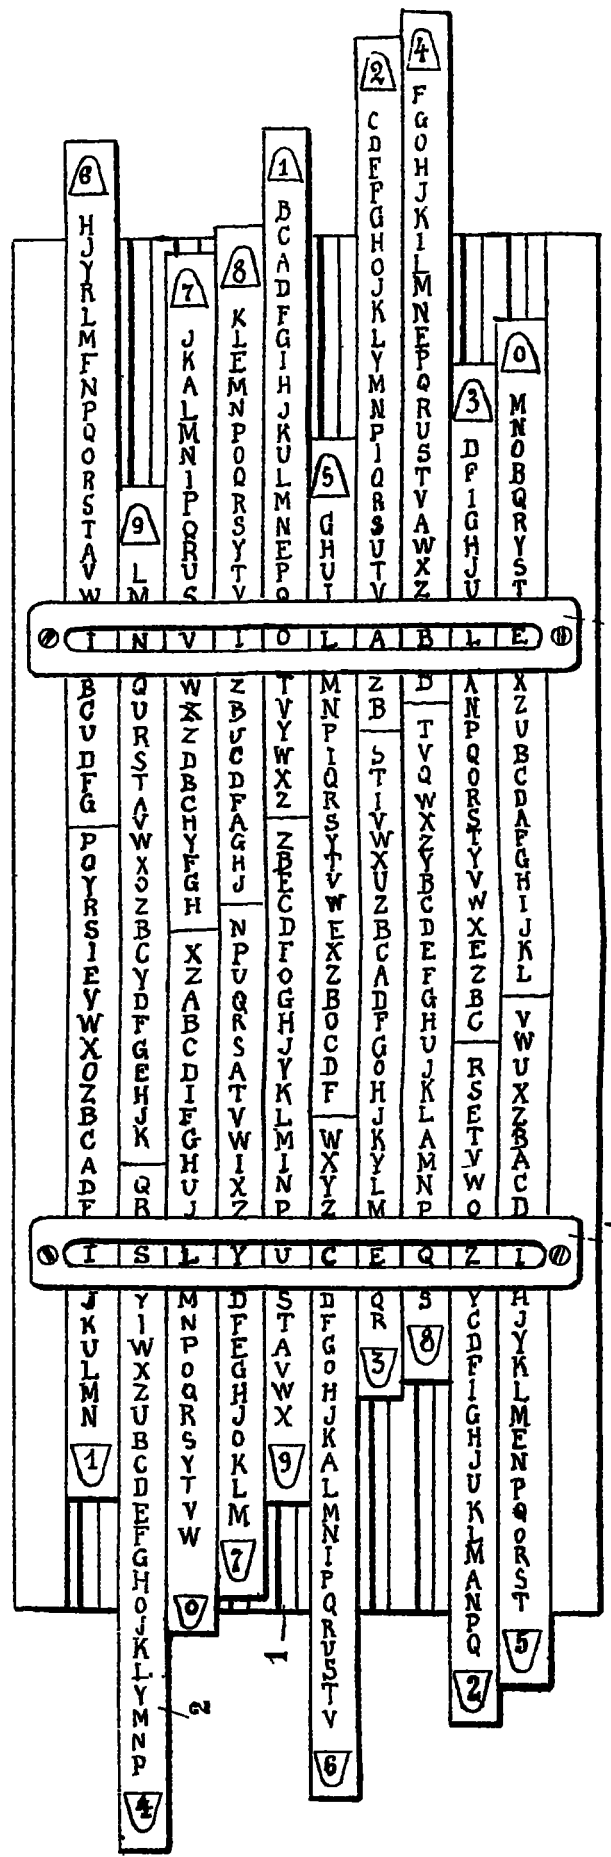 6 H J Y R L M F N P Q O R S T A V W I B C U D F G P Q Y R S I E V W X O Z B C A D F I J K U L M N 1
9 L M N Q U R S T A V W X O Z B C Y D F G E H J K Q R S Y I W X Z U B C D E F G H O J K L Y M N P 4
7 J K A L M N I P Q R U S V W X Z D B C H Y F G H X Z A B C D I F G H U J L M N P O Q R S Y T V W 0
8 K L E M N P O Q R S Y T V I Z B U C D F A G H J N P U Q R S A T V W I X Z Y D F E G H J O K L M 7
1 B C A D F G I H J K U L M N E P Q O T V Y W X Z Z B E C D F O G H J Y K L M I N P U S T A V W X 9
5 G H U I L M N P I Q R S Y T V W E X Z B O C D F W X Y Z C D F G O H J K A L M N I P Q R U S T V 6
2 C D E F G H O J K L Y M N P I Q R S U T V A Z B S T I V W X U Z B C A D F G O H J K Y L M E Q R 3
4 F G O H J K I L M N E P Q R U S T V A W X Z B D T V Q W X Z Y B C D E F G H U J K L A M N P Q S 8
3 D F I G H J U L A N P Q O R S T Y V W X E Z B C R S E T V W O Z Y C D F I G H J U K L M A N P Q 2
0 M N O B Q R Y S T E X Z U B C D A F G H I J K L V W U X Z B A C D I H J Y K L M E N P Q O R S T 5
1
2